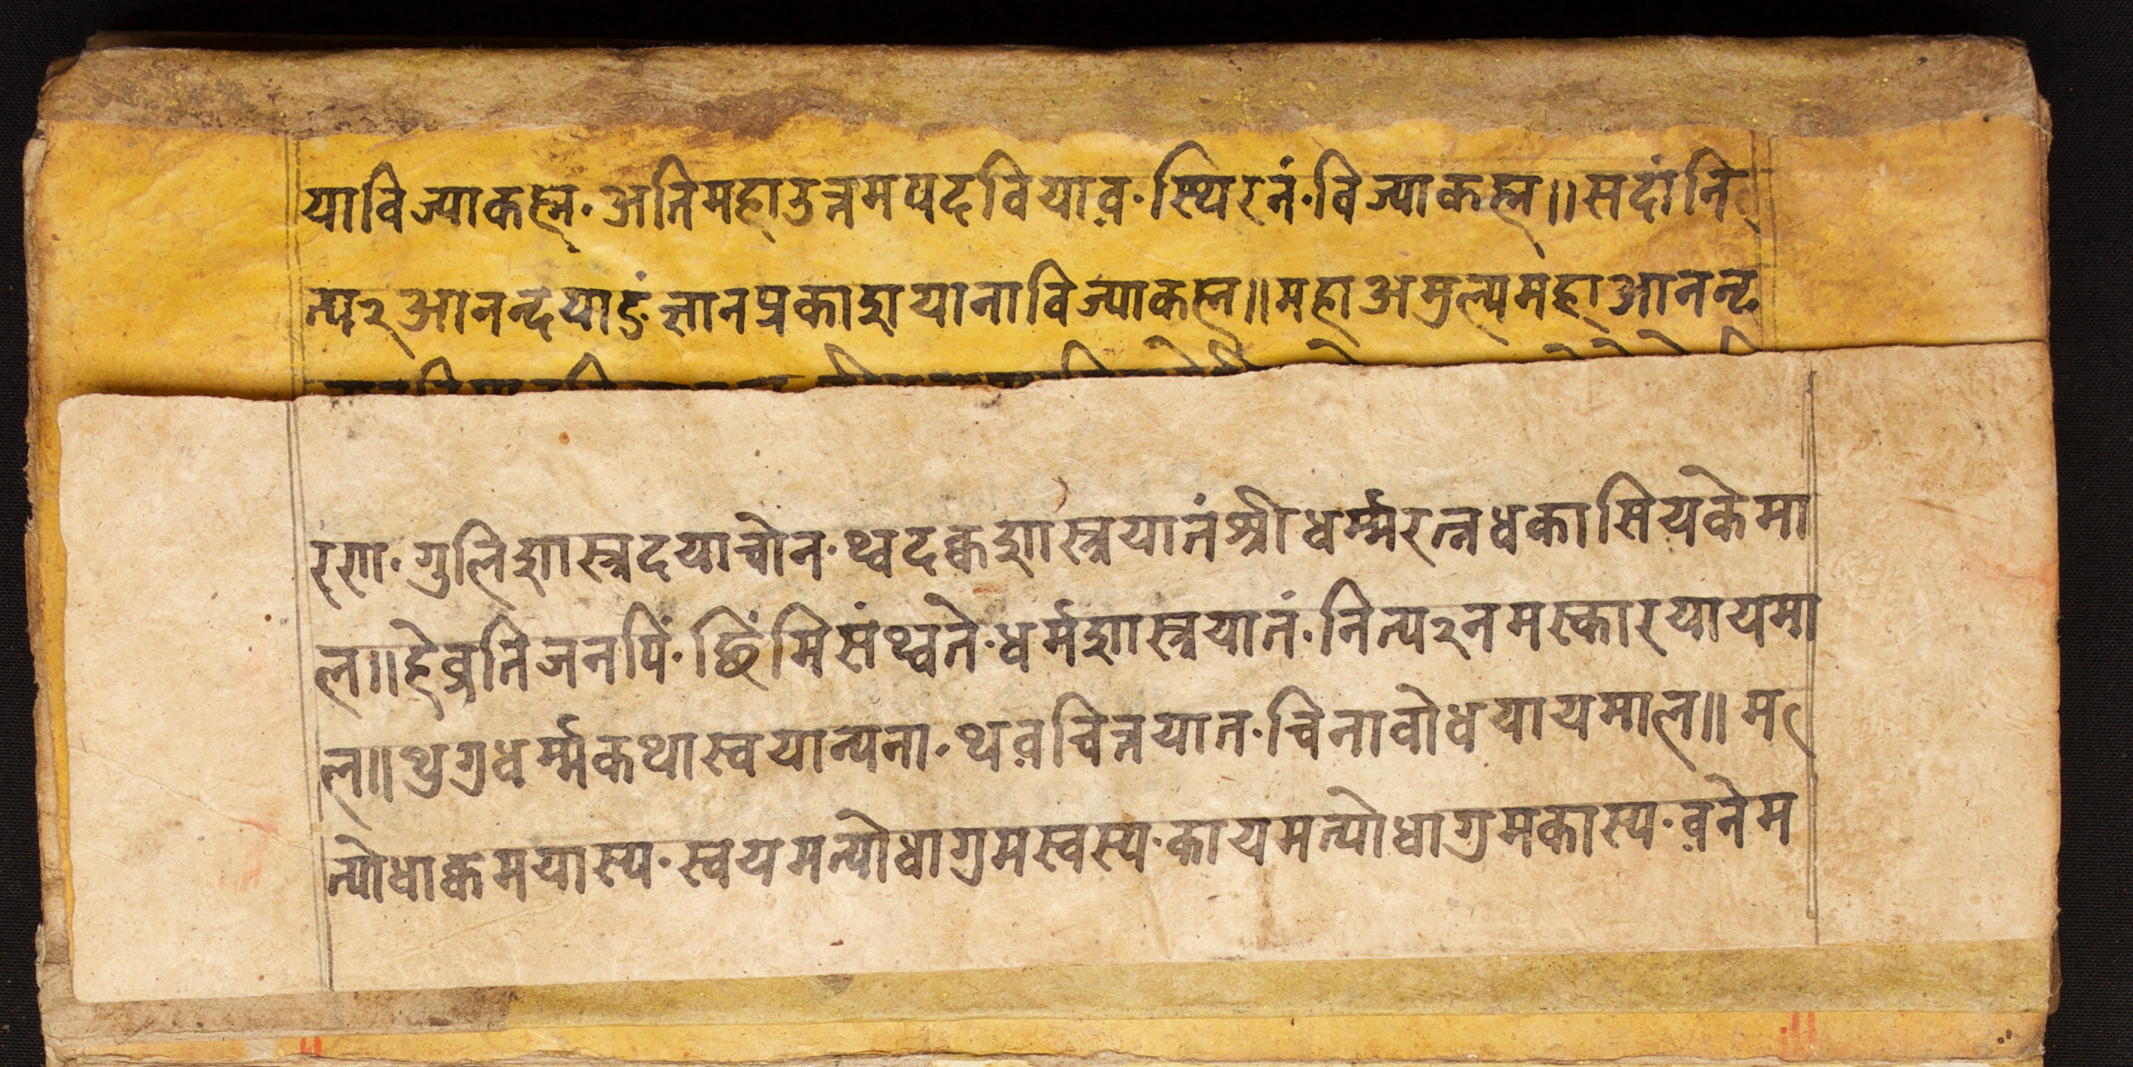 याविज्याकह्म·अतिमहाउत्तमपदवियाव़·स्थिरनं·विज्याकह्म॥सदांनि
त्य२आनन्दयाऽं·ज्ञानप्रकाशयानाविज्याकह्म॥महाअमुल्यमहाआनन्द
रसा·गुलिशास्त्रदयाचोन·थ्वदक्वशास्त्रयातंश्रीधर्म्मरत्नधकासियकेमा
ल॥हेव्रतिजनपिं·छिंमिसंथ्वते·धर्मशास्त्रयातं·नित्य२नमस्कारयायमा
ल॥थुगुधर्म्मकथास्वयान्यना·थव़चित्तयात·चिनावोधयायमाल॥म
त्योधाक्वमयास्य·स्वयमत्योधागुमस्वस्य·कायमत्योधागुमकास्य·व़नेम